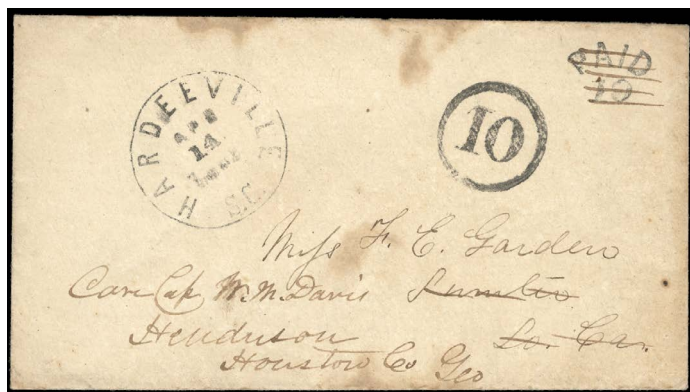 PAID
10
HARDEEVILLE S.C.
APR
14
10
Miss F. E. Garden
Care Cap W. W. Davis Sumter
Henderson So. Ca.
Houston Co Geo